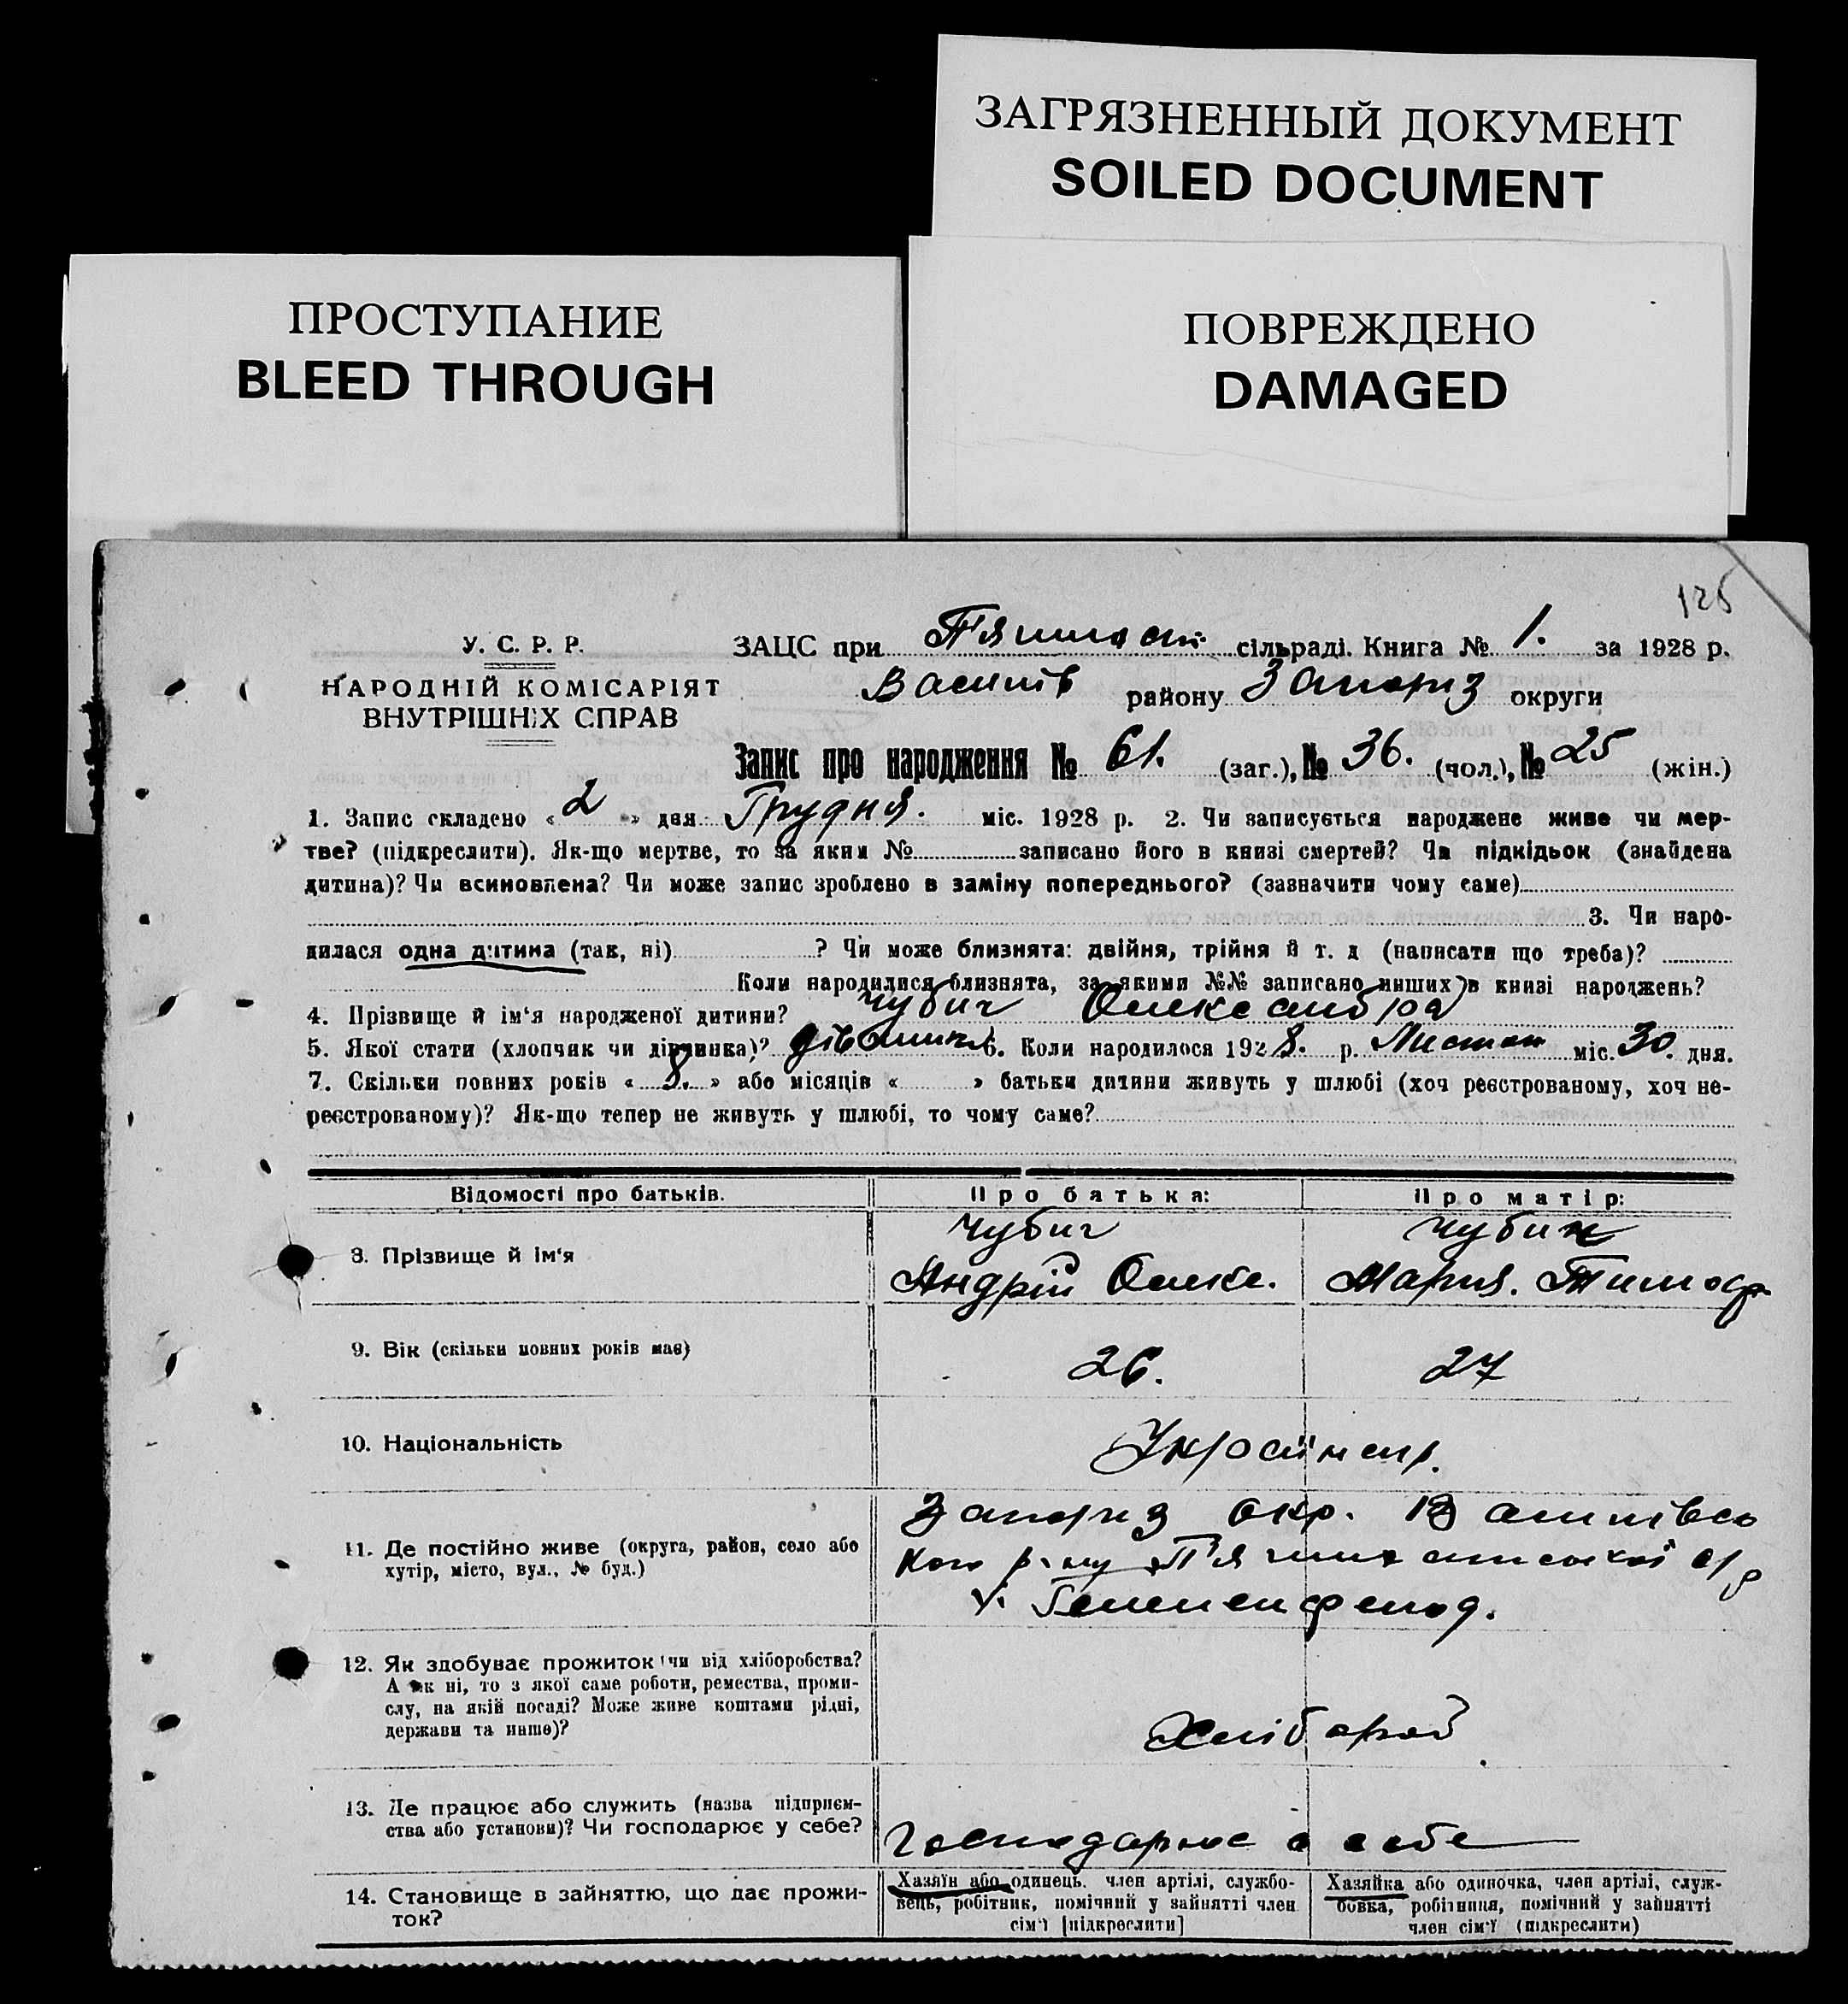 ЗАГРЯЗНЕННЫЙ ДОКУМЕНТ
SOILED DOCUMENT
ПРОСТУПАНИЕ
BLEED THROUGH
ПОВРЕЖДЕНО
DAMAGED
126
У. С. Р. Р.
НАРОДНІЙ КОМІСАРІЯТ
ВНУТРІШНІХ СПРАВ
ЗАЦС при сільраді. Книга № 1. за 1928 р.
Василів району Запоріз округи
Запис про народження № 61. (заг.), № 36. (чол.), № 25 (жін.)
1. Запис складено « 2 » дня Грудня. міс. 1928 р. 2. Чи записується народжене живе чи мер-
тве? (підкреслити). Як-що мертве, то за яким № записано його в книзі смертей? Чи підкідьок (знайдена
дитина)? Чи всиновлена? Чи може запис зроблено в заміну попереднього? (зазначити чому саме)
3. Чи наро-
дилася одна дитина (так, ні) ? Чи може близнята: двійня, трійня й т. д (написати що треба)?
Коли народилися близнята, за якими №№ записано инших в книзі народжень?
4. Прізвище й ім‘я народженої дитини? Чубич Олександра
5. Якої стати (хлопчик чи дівчинка)? дівчинка 6. Коли народилося 1928. р. Листоп міс. 30. дня.
7. Скільки повних років « 8. » або місяців « » батьки дитини живуть у шлюбі (хоч реєстрованому, хоч не-
реєстрованому)? Як-що тепер не живуть у шлюбі, то чому саме?
Відомості про батьків. Про батька: Про матір:
8. Прізвище й ім‘я Чубич Чубич
Андрій Олекс. Мария. Тимоф
9. Вік (скільки повних років має) 26. 27
10. Національність Українці.
11. Де постійно живе (округа, район, село або
хутір, місто, вул., № буд.)
Запориз окр. Василівсь
кого р-ну П'ятихатської с/р
12. Як здобуває прожиток (чи від хліборобства?
А як ні, то з якої саме роботи, ремества, проми-
слу, на якій посаді? Може живе коштами рідні,
держави та инше)?
Хлібороб
13. Де працює або служить (назва підприєм-
ства або установи)? Чи господарює у себе?
Господарює в себе
14. Становище в зайняттю, що дає прожи-
ток?
Хазяїн або одинець. член артілі, службо-
вець, робітник, помічний у зайнятті член
сім‘ї [підкреслити]
Хазяйка або одиночка, член артілі, служ-
бовка, робітниця, помічний у зайнятті
член сім‘ї (підкреслити)